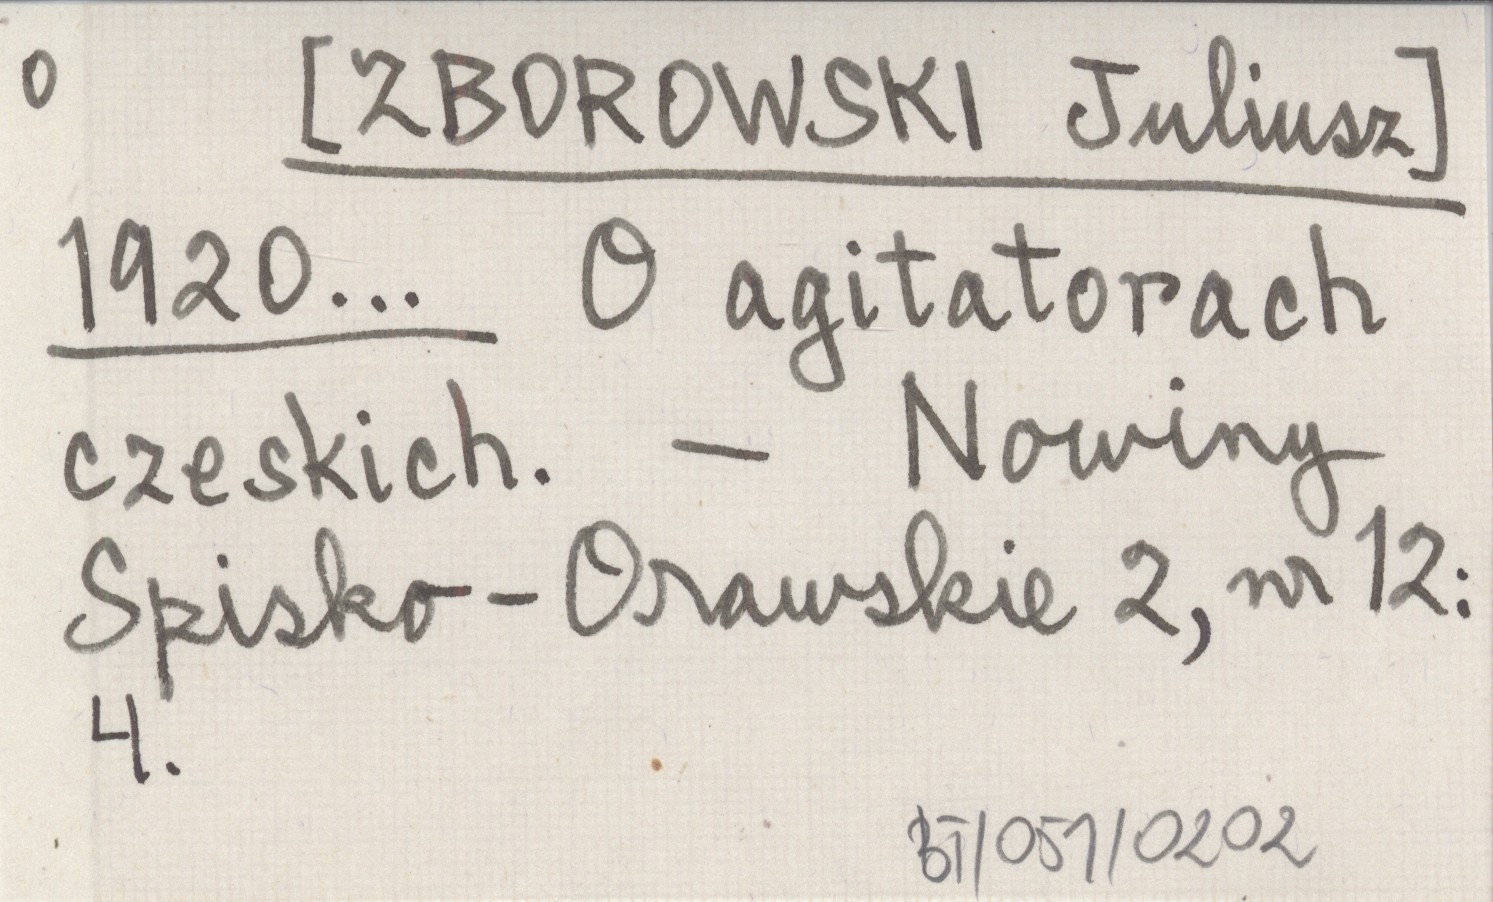 o [ZBOROWSKI Juliusz]
1920... O agitatorach
czeskich. — Nowiny
Spisko-Orawskie 2, nr 12:
4.
BT/051/0202